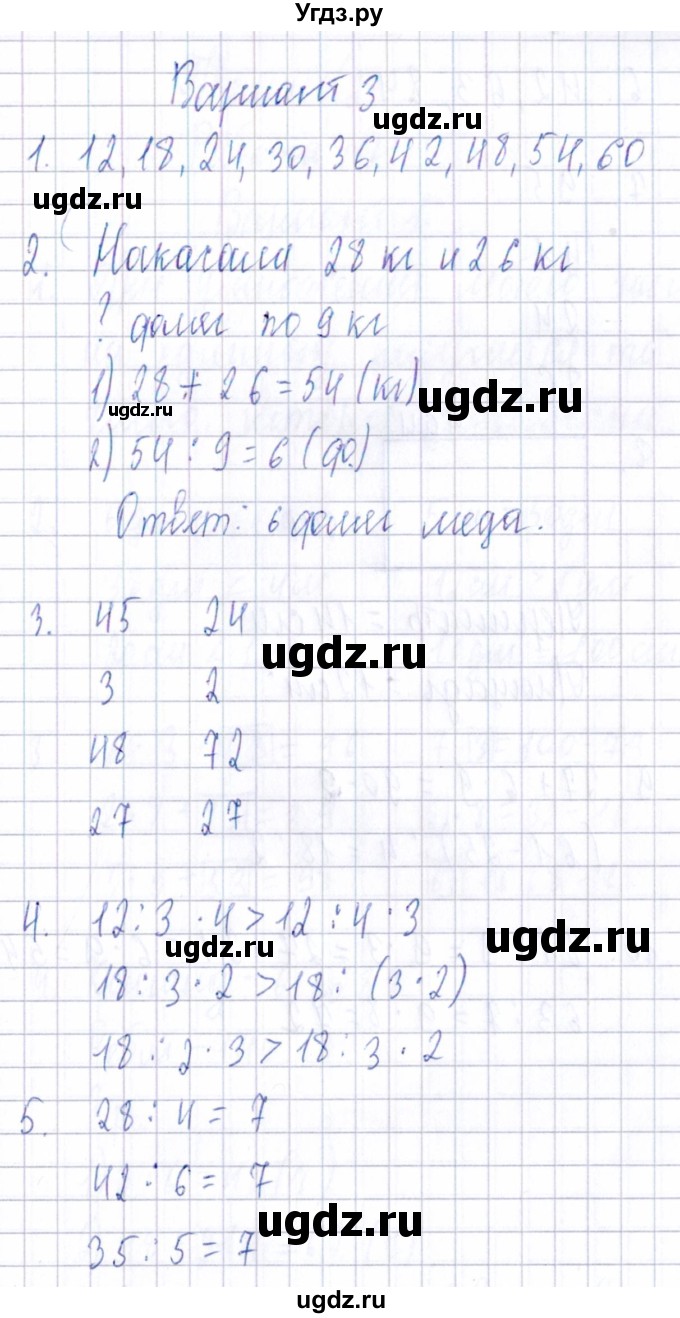 Угдз.ру
Вариант 3
ugdz.ru
1. 12, 18, 24, 30, 36, 42, 48, 54, 60
ugdz.ru
2. Накачали 28 кг и 26 кг
? доляг по 9 кг
1) 28 + 26 = 54 (кг)
ugdz.ru
ugdz.ru
2) 54 : 9 = 6 (ф.)
Ответ: 6 фляг меда.
3. 45 24
ugdz.ru
3 2
48 72
27 27
4. 12 : 3 · 4 > 12 : 4 · 3
ugdz.ru
ugdz.ru
18 : 3 · 2 > 18 : (3 · 2)
18 : 2 · 3 > 18 : 3 · 2
5. 28 : 4 = 7
42 : 6 = 7
ugdz.ru
35 : 5 = 7
ugdz.ru